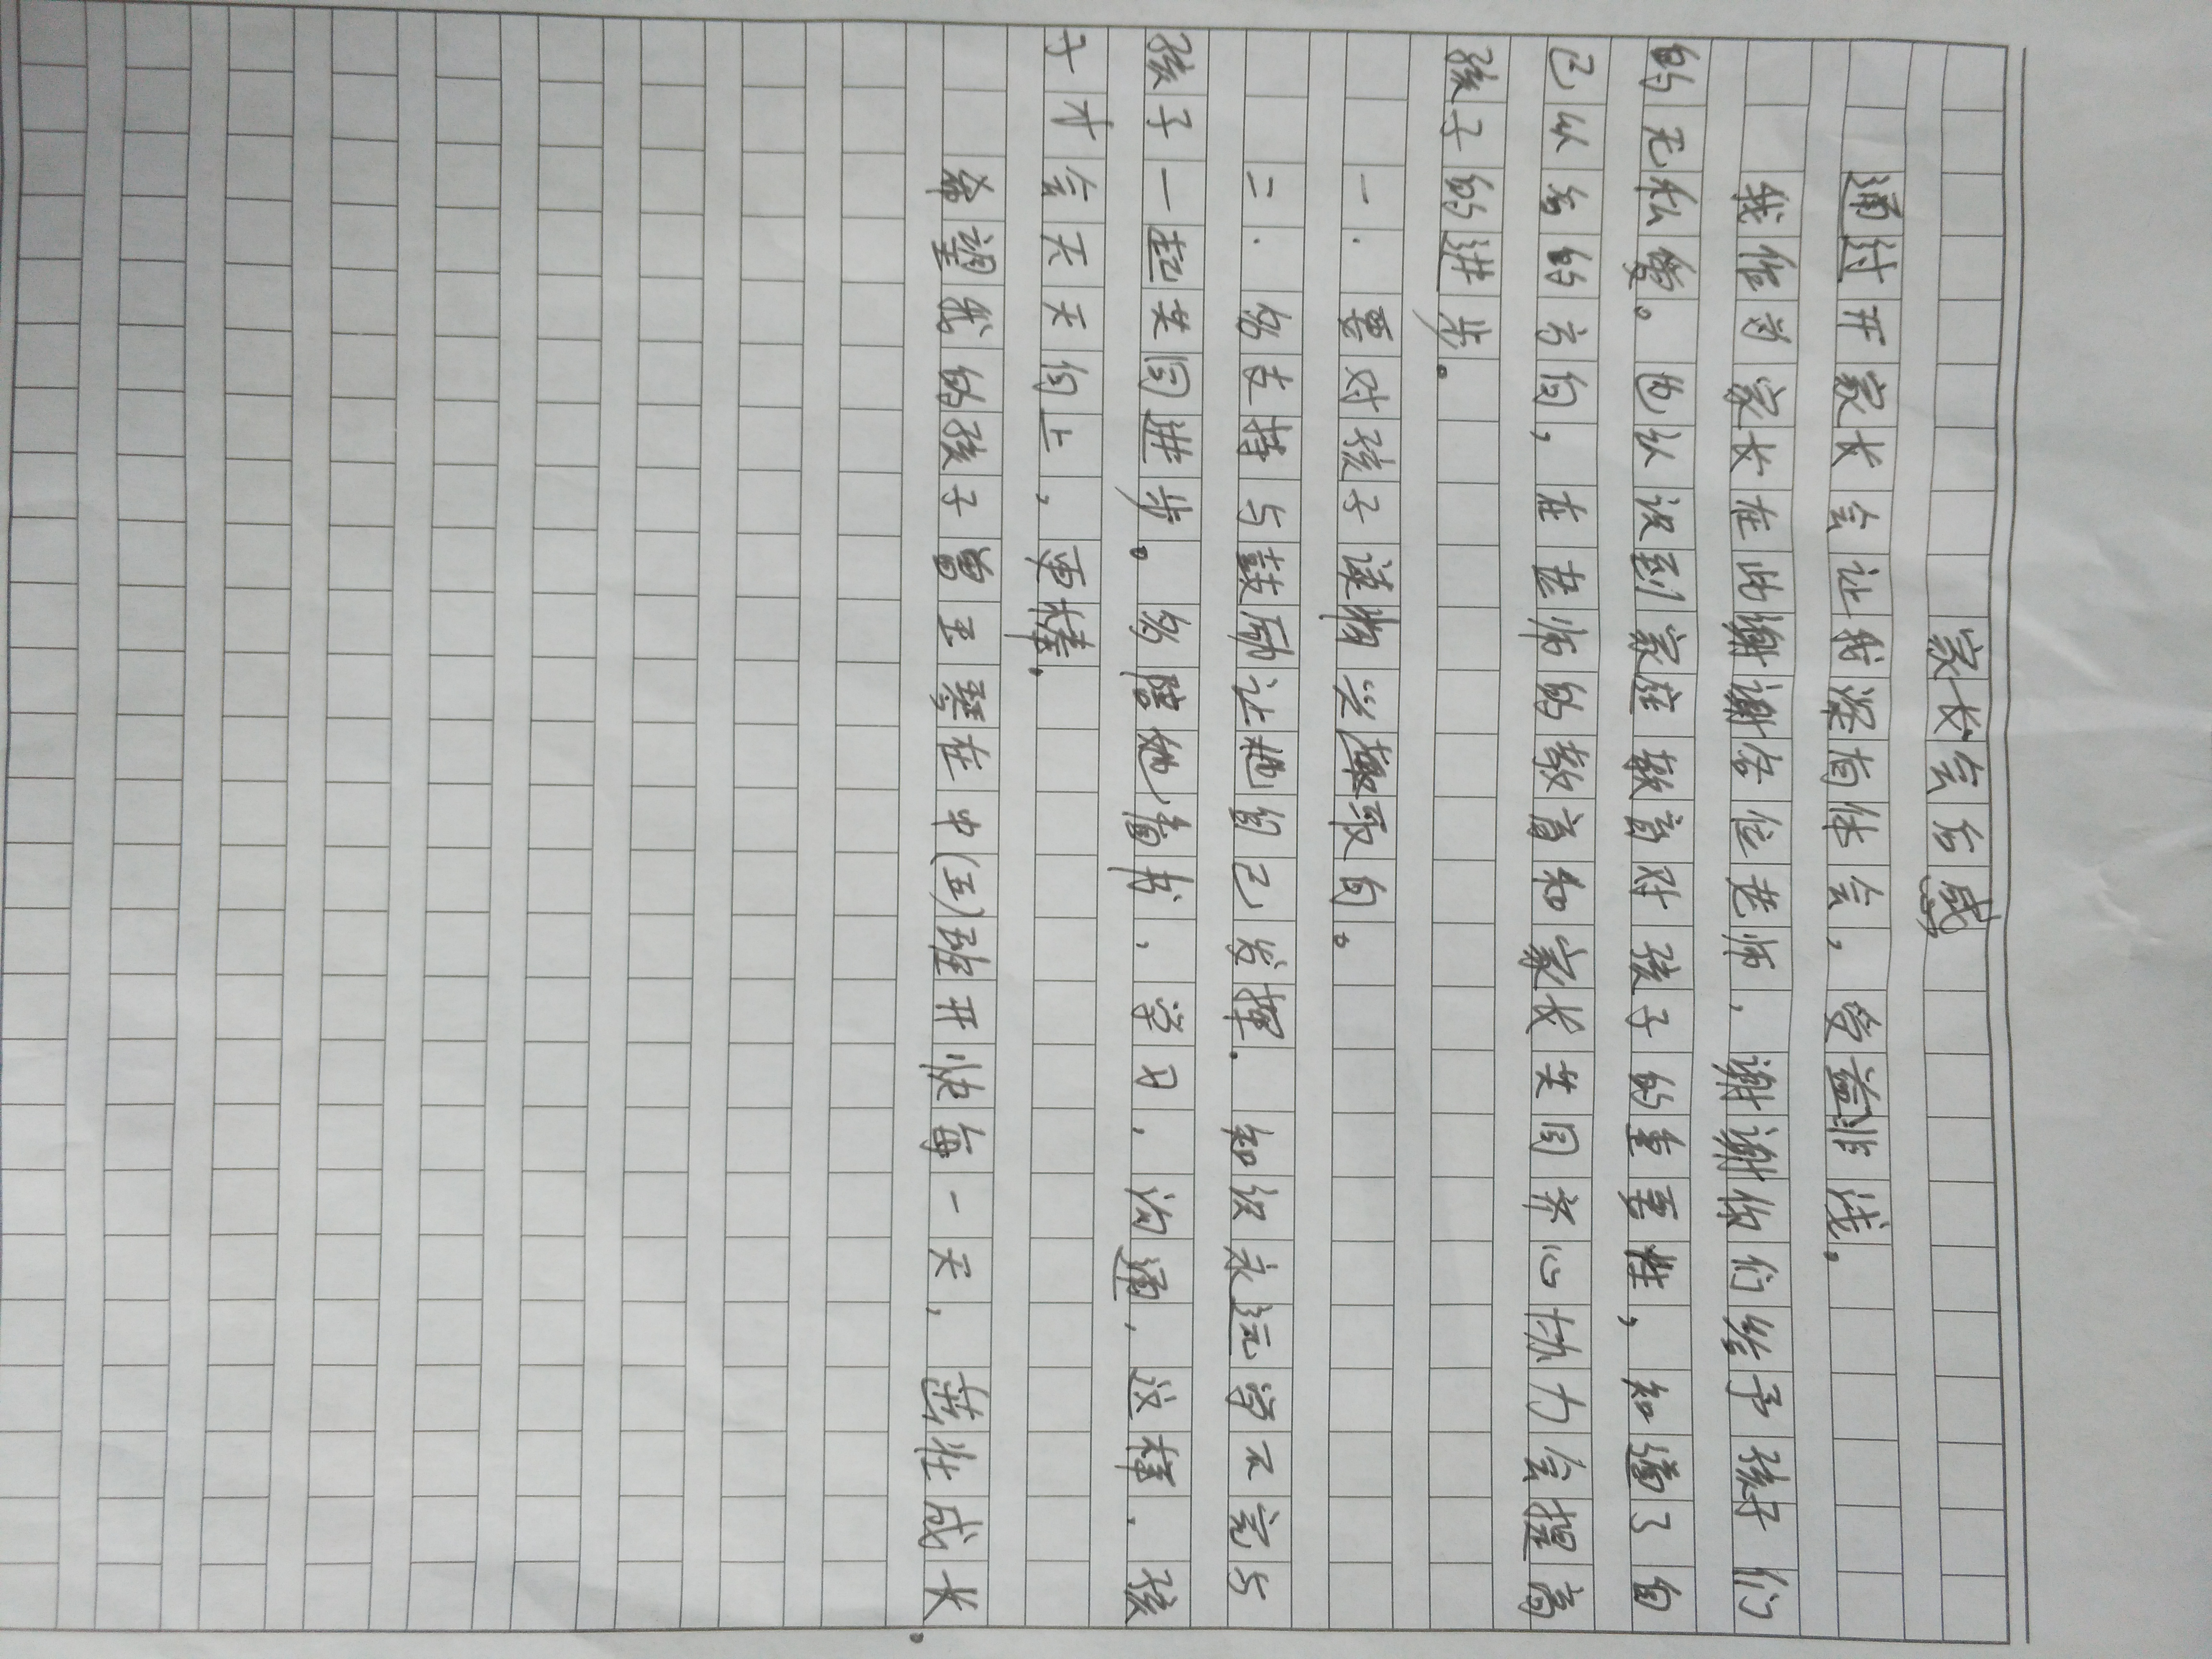 家长会后感
通过开家长会让我深有体会，受益非浅。
我作为家长在此谢谢各位老师，谢谢你们给予孩子们
的无私爱。也认识到家庭教育对孩子的重要性，知道了自
己以后的方向，在老师的教育和家长共同齐心协力会提高
孩子的进步。
一．要对孩子读物兴趣取向。
二．多支持与鼓励让他自己发挥．知识永远学不完与
孩子一起共同进步。多陪他看书、学习，沟通，这样．孩
子才会天天向上，更棒．
希望我的孩子曾王馨在中(五)班开快每一天，茁壮成长．